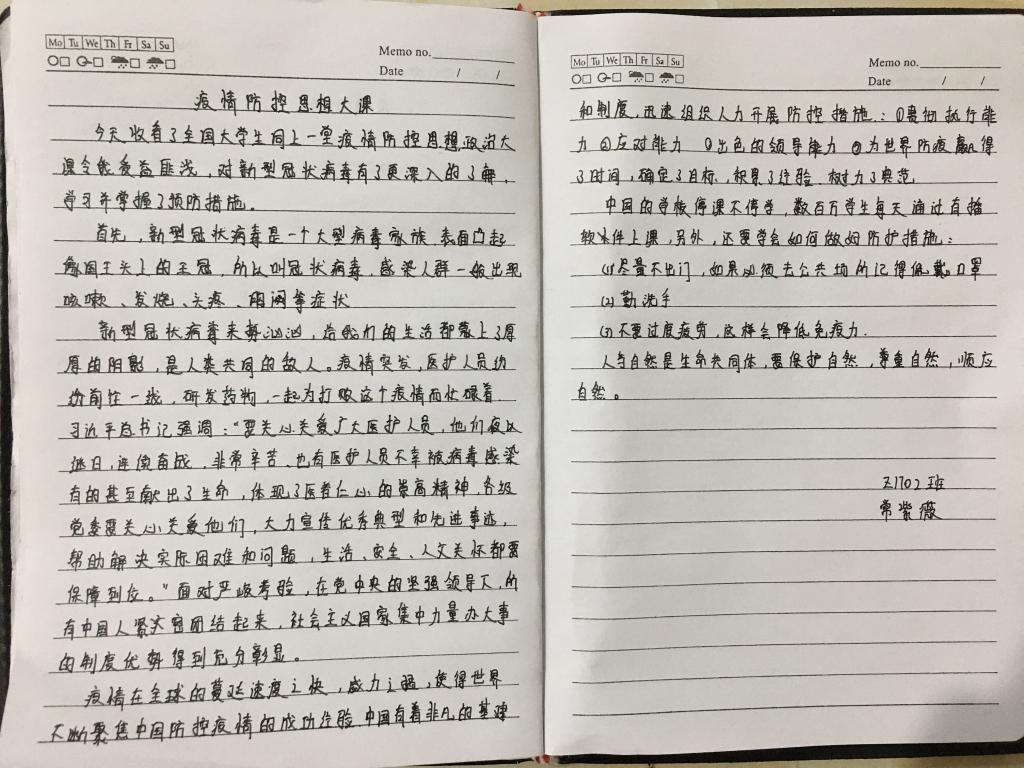 Mo Tu We Th Fr Sa Su
Memo no.
Date / /
疫情防控思想大课
今天收看了全国大学生同上一堂疫情防控思想政治大
课令我受益匪浅，对新型冠状病毒有了更深入的了解，
学习并掌握了预防措施。
首先，新型冠状病毒是一个大型病毒家族，表面凸起
像国王头上的王冠，所以叫冠状病毒，感染人群一般出现
咳嗽、发烧、头疼、胸闷等症状
新型冠状病毒来势汹汹，给我们的生活都蒙上了厚
厚的阴影，是人类共同的敌人。疫情突发，医护人员纷
纷前往一线，研发药物，一起为打败这个疫情而忙碌着
习近平总书记强调：“要关心关爱广大医护人员，他们夜以
继日，连续奋战，非常辛苦，也有医护人员不幸被病毒感染
有的甚至献出了生命，体现了医者仁心的崇高精神，各级
党委要关心关爱他们，大力宣传优秀典型和先进事迹，
帮助解决实际困难和问题，生活、安全、人文关怀都要
保障到位。”面对严峻考验，在党中央的坚强领导下，所
有中国人紧密团结起来，社会主义国家集中力量办大事
的制度优势得到充分彰显。
疫情在全球的蔓延速度之快，威力之强，使得世界
不断聚焦中国防控疫情的成功经验 中国有着非凡的基础
Mo Tu We Th Fr Sa Su
Memo no.
Date / /
和制度，迅速组织人力开展防控措施：①贯彻执行能
力 ②应对能力 ③出色的领导能力 ④为世界防疫赢得
了时间，确定了目标，积累了经验 树力了典范
中国的学校停课不停学，数百万学生每天通过直播
软件上课，另外，还要学会如何做好防护措施：
(1)尽量不出门，如果必须去公共场所记得佩戴口罩
(2) 勤洗手
(3)不要过度疲劳，这样会降低免疫力.
人与自然是生命共同体，要保护自然，尊重自然，顺应
自然。
Z1702班
常紫薇